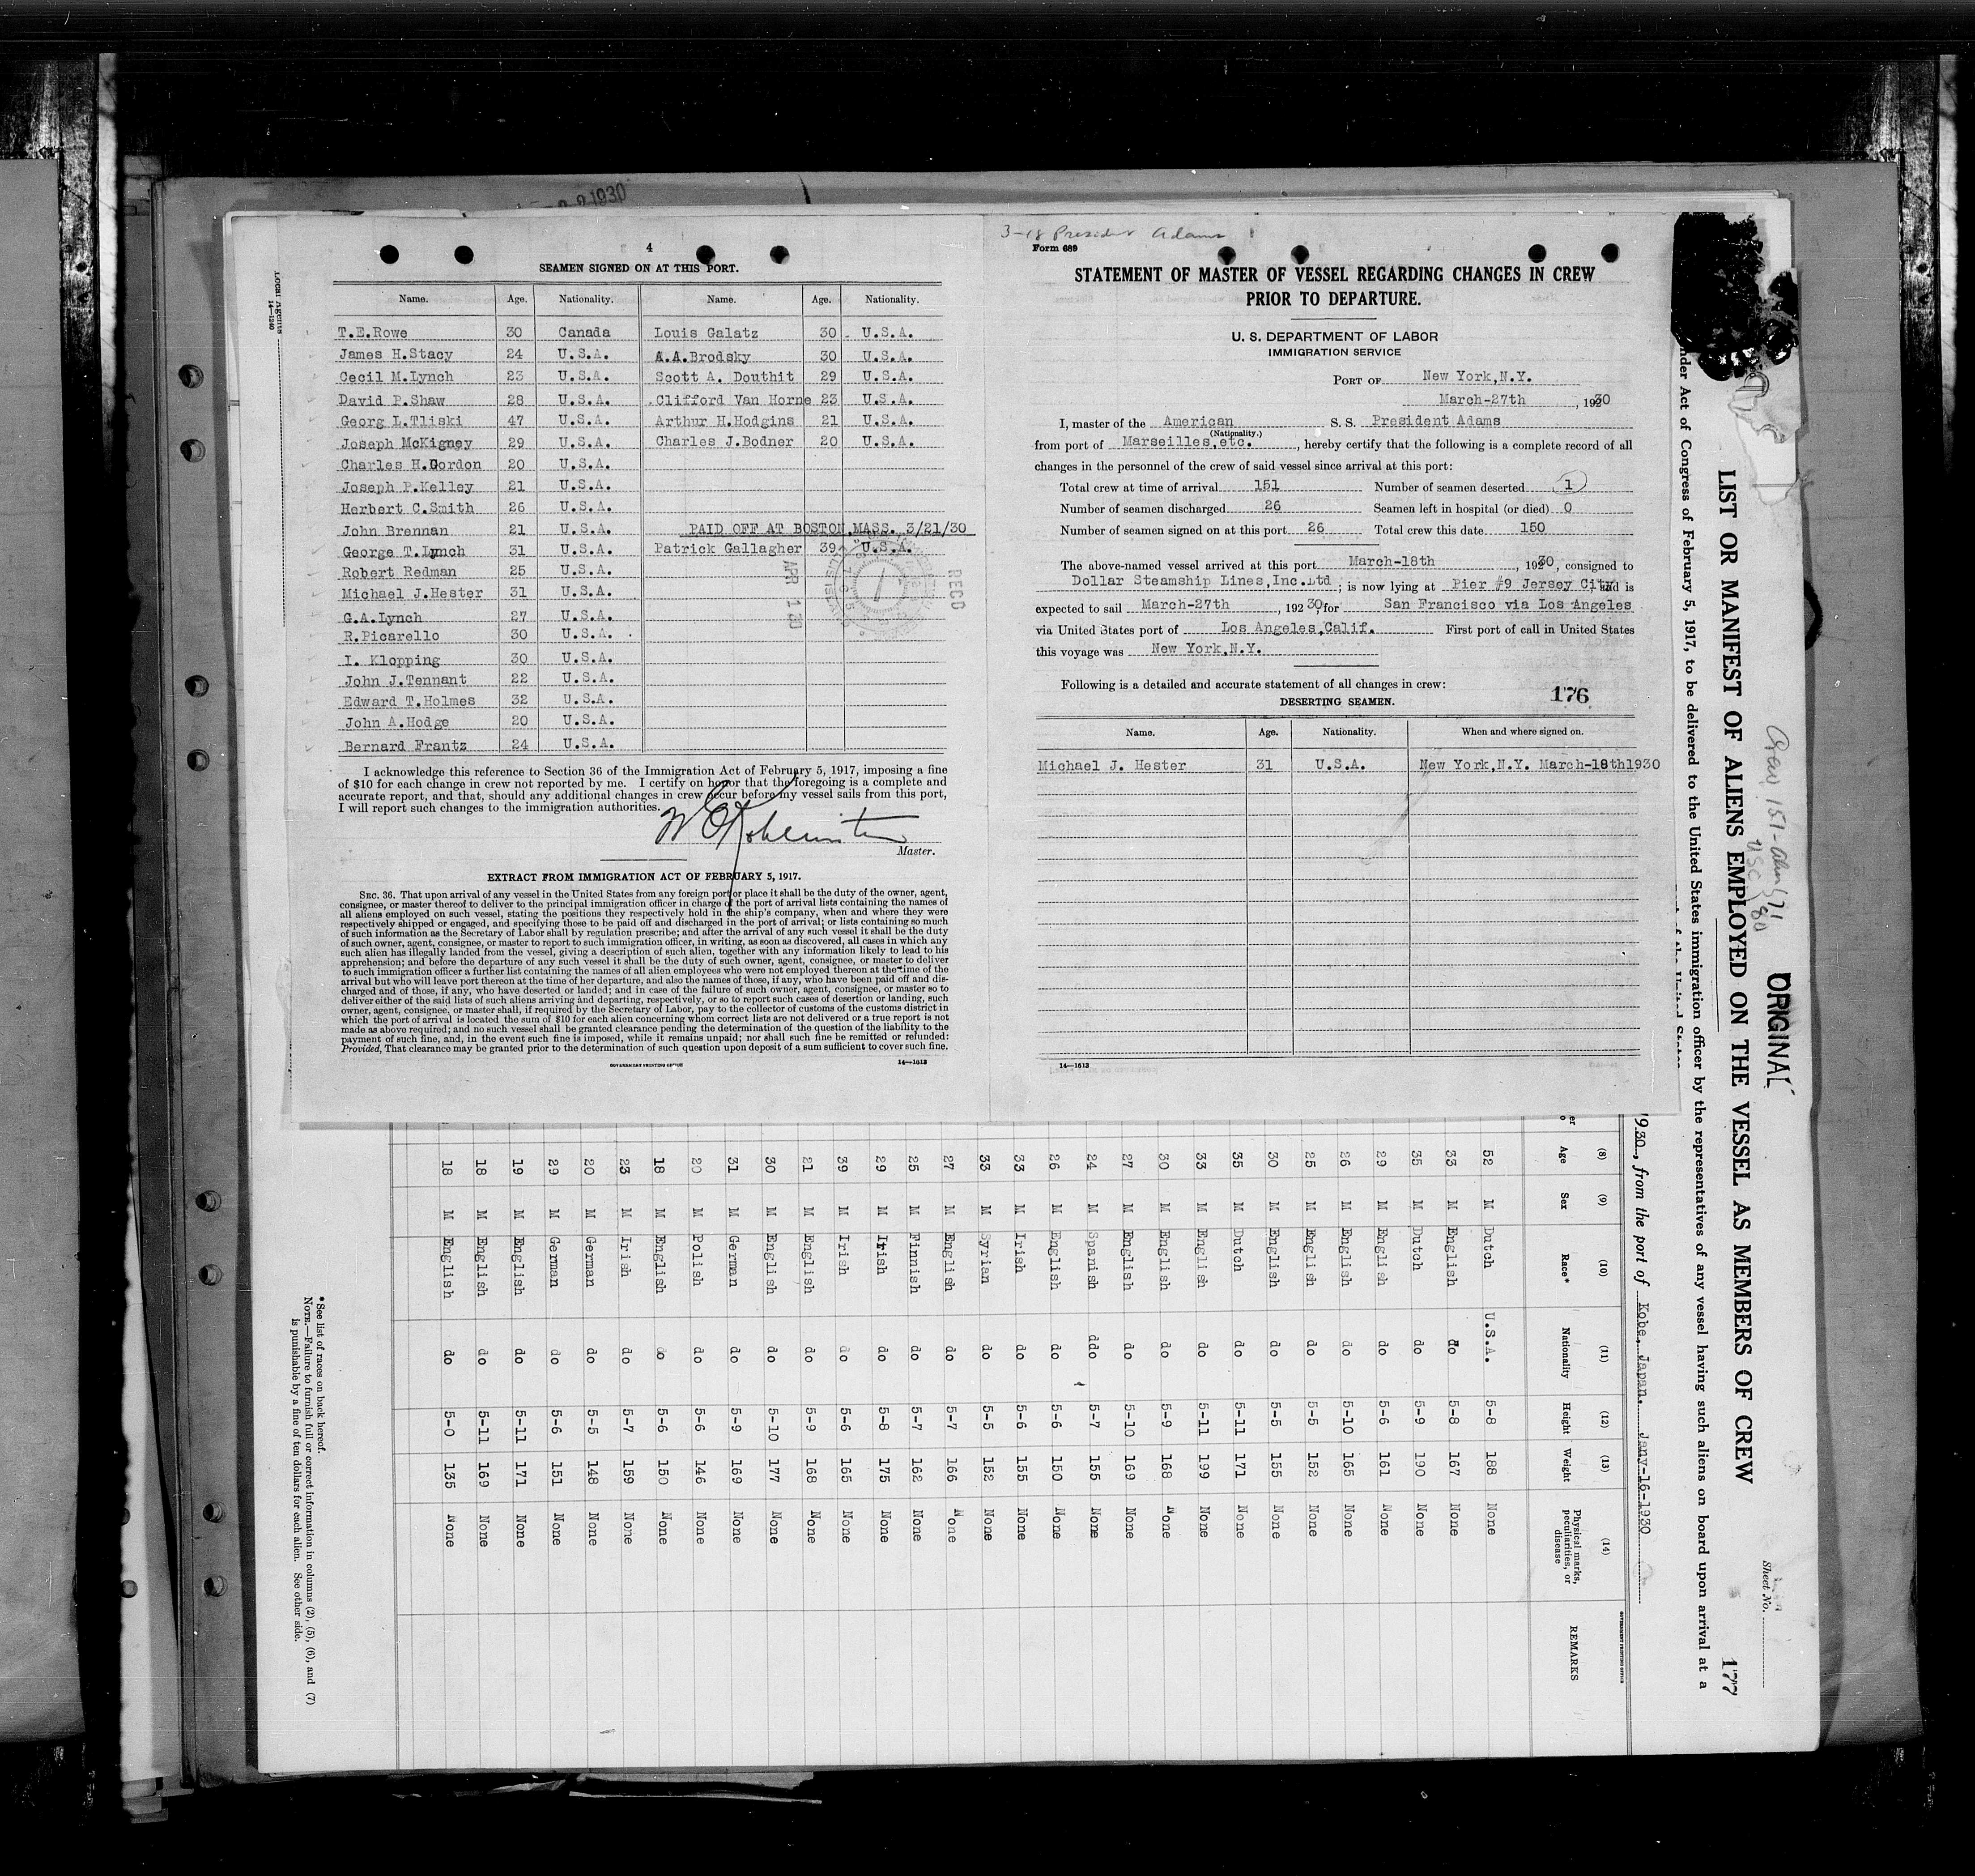 2 1930
4
SEAMEN SIGNED ON AT THIS PORT.
Name. Age. Nationality. Name. Age. Nationality.
T.E.Rowe 30 Canada Louis Galatz 30 U.S.A.
James H.Stacy 24 U.S.A. A.A.Brodsky 30 U.S.A.
Cecil M.Lynch 23 U.S.A. Scott A. Douthit 29 U.S.A.
David P.Shaw 28 U.S.A. Clifford Van Horne 23 U.S.A.
Georg L.Tliski 47 U.S.A. Arthur H.Hodgins 21 U.S.A.
Joseph McKigney 29 U.S.A. Charles J.Bodner 20 U.S.A.
Charles H.Gordon 20 U.S.A.
Joseph P.Kelley 21 U.S.A.
Herbert C.Smith 26 U.S.A.
John Brennan 21 U.S.A. PAID OFF AT BOSTON,MASS. 3/21/30
George T.Lynch 31 U.S.A. Patrick Gallagher 39 U.S.A.
Robert Redman 25 U.S.A.
Michael J.Hester 31 U.S.A.
G.A.Lynch 27 U.S.A.
R.Picarello 30 U.S.A.
I. Klopping 30 U.S.A.
John J.Tennant 22 U.S.A.
Edward T.Holmes 32 U.S.A.
John A.Hodge 20 U.S.A.
Bernard Frantz 24 U.S.A.
APR 1 30
RECD
I acknowledge this reference to Section 36 of the Immigration Act of February 5, 1917, imposing a fine
of $10 for each change in crew not reported by me. I certify on honor that the foregoing is a complete and
accurate report, and that, should any additional changes in crew occur before my vessel sails from this port,
I will report such changes to the immigration authorities.
Master.
EXTRACT FROM IMMIGRATION ACT OF FEBRUARY 5, 1917.
SEC. 36. That upon arrival of any vessel in the United States from any foreign port or place it shall be the duty of the owner, agent,
consignee, or master thereof to deliver to the principal immigration officer in charge of the port of arrival lists containing the names of
all aliens employed on such vessel, stating the positions they respectively hold in the ship's company, when and where they were
respectively shipped or engaged, and specifying those to be paid off and discharged in the port of arrival; or lists containing so much
of such information as the Secretary of Labor shall by regulation prescribe; and after the arrival of any such vessel it shall be the duty
of such owner, agent, consignee, or master to report to such immigration officer, in writing, as soon as discovered, all cases in which any
such alien has illegally landed from the vessel, giving a description of such alien, together with any information likely to lead to his
apprehension; and before the departure of any such vessel it shall be the duty of such owner, agent, consignee, or master to deliver
to such immigration officer a further list containing the names of all alien employees who were not employed thereon at the time of the
arrival but who will leave port thereon at the time of her departure, and also the names of those, if any, who have been paid off and dis-
charged and of those, if any, who have deserted or landed; and in case of the failure of such owner, agent, consignee, or master so to
deliver either of the said lists of such aliens arriving and departing, respectively, or so to report such cases of desertion or landing, such
owner, agent, consignee, or master shall, if required by the Secretary of Labor, pay to the collector of customs of the customs district in
which the port of arrival is located the sum of $10 for each alien concerning whom correct lists are not delivered or a true report is not
made as above required; and no such vessel shall be granted clearance pending the determination of the question of the liability to the
payment of such fine, and, in the event such fine is imposed, while it remains unpaid; nor shall such fine be remitted or refunded:
Provided, That clearance may be granted prior to the determination of such question upon deposit of a sum sufficient to cover such fine.
GOVERNMENT PRINTING OFFICE 14—1613
3-18 President Adams
Form 689
STATEMENT OF MASTER OF VESSEL REGARDING CHANGES IN CREW
PRIOR TO DEPARTURE.
U. S. DEPARTMENT OF LABOR
IMMIGRATION SERVICE
PORT OF New York,N.Y.
March-27th, 1930
I, master of the American S. S. President Adams
(Nationality.)
from port of Marseilles,etc., hereby certify that the following is a complete record of all
changes in the personnel of the crew of said vessel since arrival at this port:
Total crew at time of arrival 151 Number of seamen deserted 1
Number of seamen discharged 26 Seamen left in hospital (or died) 0
Number of seamen signed on at this port 26 Total crew this date 150
The above-named vessel arrived at this port March-18th, 1930, consigned to
Dollar Steamship Lines,Inc.Ltd; is now lying at Pier #9 Jersey City, and is
expected to sail March-27th, 192 30, for San Francisco via Los Angeles
via United States port of Los Angeles,Calif. First port of call in United States
this voyage was New York,N.Y.
Following is a detailed and accurate statement of all changes in crew:
176
DESERTING SEAMEN.
Name. Age. Nationality. When and where signed on.
Michael J. Hester 31 U.S.A. New York,N.Y. March-18th1930
14—1613
Sheet No.
177
ORIGINAL
LIST OR MANIFEST OF ALIENS EMPLOYED ON THE VESSEL AS MEMBERS OF CREW
nder Act of Congress of February 5, 1917, to be delivered to the United States immigration officer by the representatives of any vessel having such aliens on board upon arrival at a
930, from the port of Kobe, Japan. Jany-16-1930
(8) (9) (10) (11) (12) (13) (14)
Age Sex Race* Nationality Height Weight Physical marks, peculiarities, or disease REMARKS
52 M Dutch U.S.A. 5-8 188 None
33 M English do 5-8 167 None
35 M Dutch do 5-9 190 None
29 M English do 5-6 161 None
26 M English do 5-10 165 None
25 M English do 5-5 152 None
30 M English do 5-5 155 None
35 M Dutch do 5-11 171 None
33 M English do 5-11 199 None
30 M English do 5-9 168 None
27 M English do 5-10 169 None
24 M Spanish ddo 5-7 155 None
26 M English do 5-6 150 None
33 M Irish do 5-6 155 None
33 M Syrian do 5-5 152 None
27 M English do 5-7 166 None
25 M Finnish do 5-7 162 None
29 M Irish do 5-8 175 None
39 M Irish do 5-6 165 None
21 M English do 5-9 168 None
30 M English do 5-10 177 None
31 M German do 5-9 169 None
20 M Polish do 5-6 146 None
18 M English do 5-6 150 None
23 M Irish do 5-7 159 None
20 M German do 5-5 148 None
29 M German do 5-6 151 None
19 M English do 5-11 171 None
18 M English do 5-11 169 None
18 M English do 5-0 135 None
* See list of races on back hereof.
NOTE.—Failure to furnish full or correct information in columns (2), (5), (6), and (7)
is punishable by a fine of ten dollars for each alien. See other side.